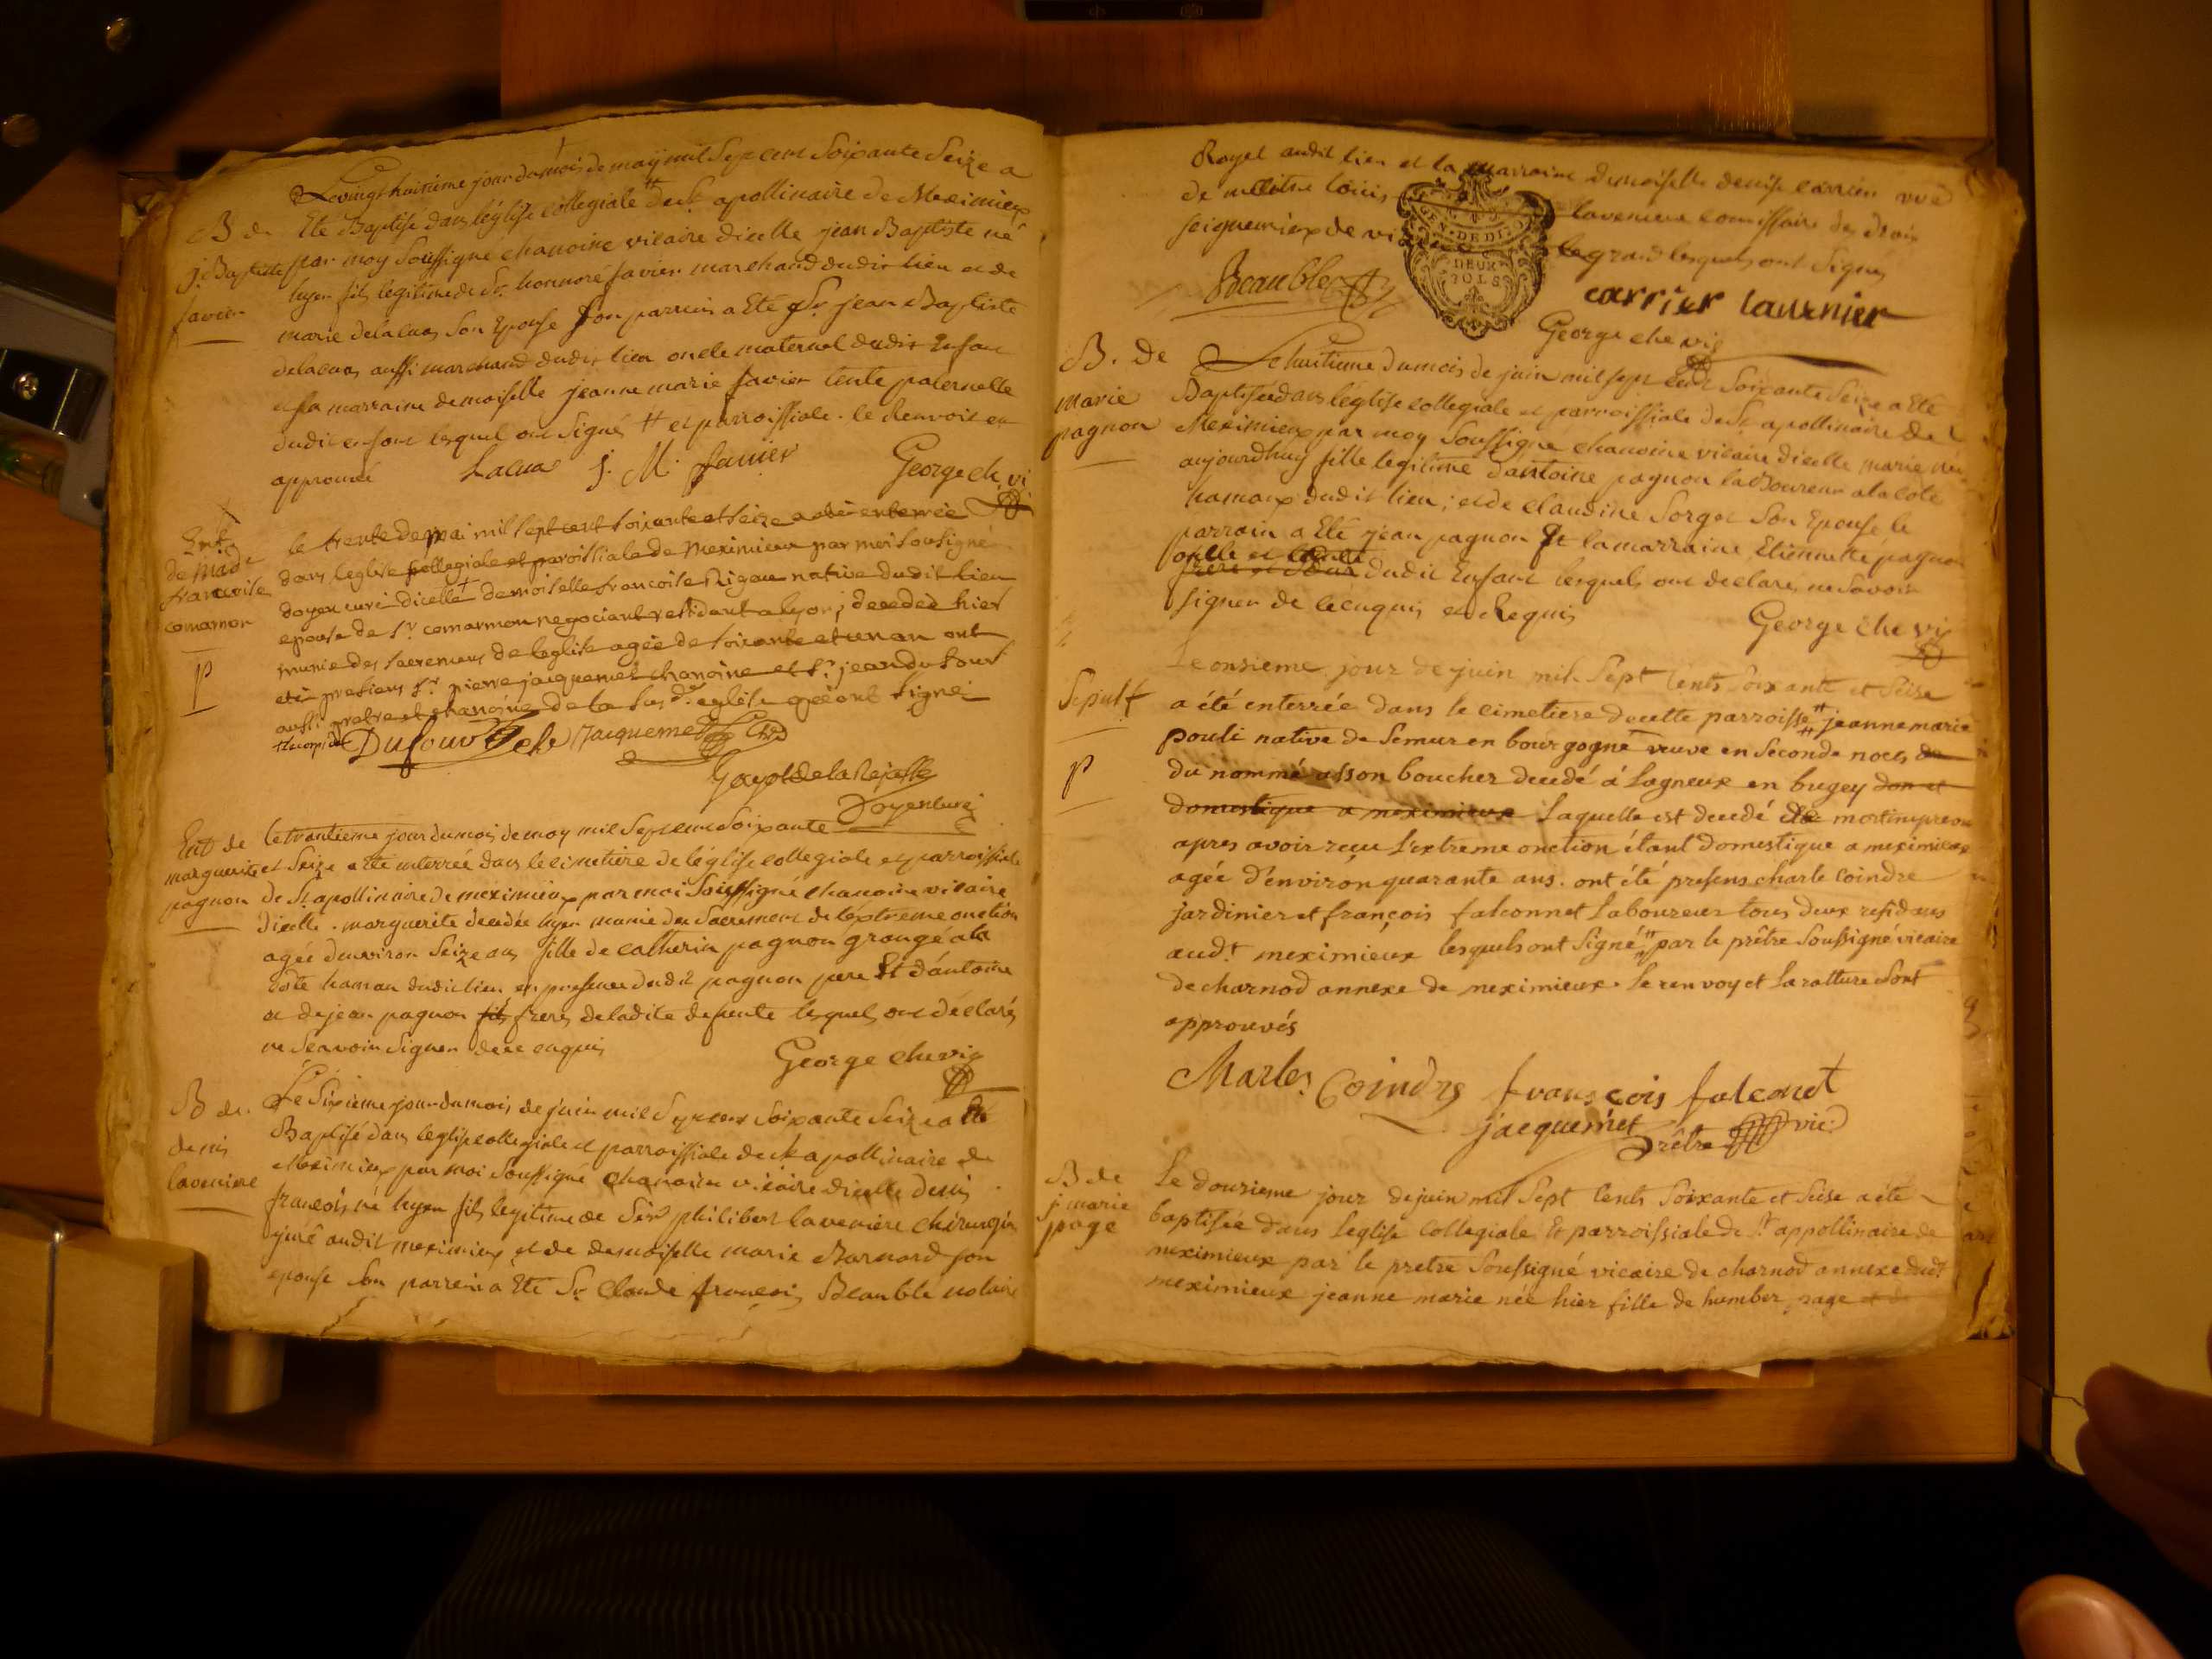 Le vingt huitième jour du mois de maÿ mil sept cent soixante seize a
B de
Eté Baptisé dans léglise collegiale # de St apollinaire de Meximieux
j. Baptiste
par moy soussigné chanoine vicaire dicelle jean Baptiste né
favier
hyer fils legitime de Sr. honnoré favier marchand dudit lieu et de
marie delacua son Epouse son parrein a Eté Sr. jean Baptiste
delacua aussi marchand dudit lieu oncle maternel dudit Enfant
et sa marraine demoiselle jeanne marie favier tente paternelle
dudit enfant lesquel ont signé # et parroissiale. le Renvoit en
approuvé
Lacua J. M. favier George ch. vi
Ent.
de Made
francoise
comarmon
P
le trente de mai mil sept cent soixante et seize a été enterrée
dans leglise collegiale et paroissiale de Meximieux par moi sousigné
doyen curé dicelle + demoiselle francoise Rigau native dudit lieu
epouse de Sr comarmon negociant residant a lyon, decedée hier
munie des sacremens de leglise agée de soixante et un an ont
eté presens Sr. pierre jacquemet chanoine et Sr. jean dufour
aussi pretre et chanoine de la susde. eglise qui ont signé
+ le corps de
Dufour Jacquemet
Gayot de la Rejasse
Doyen curé
Ent de
marguerite
pagnon
le trantieme jour du mois de may mil sept cent soixante
et seize a été enterrée dans le cimetière de léglise collegiale et parroissiale
de St apollinaire de meximieux par moi soussigné chanoine vicaire
dicelle. marguerite decedée hyer munie du sacrement de léxtreme onction
agée denviron seize ans fille de catherin pagnon grangé a la
Côte hamau dudit lieu en presence dudit pagnon pere Et dántoine
et de jean pagnon fils freres de ladite defunte lesquels ont déclarés
ne scavoir signer de ce enquis
George che vic
B de.
denis
laveniere
Le sixieme jour du mois de juin mil sept cent soixante seize a Eté
Baptisé dans leglise collegiale et parroissiale de St apollinaire de
Meximieux par moi soussigné chanoine vicaire dicelle denis
francois né hyer fils legitime de Sieur philibert laveniere chirurgien
juré audit meximieux et de demoiselle marie Barnard son
epouse son parrein a Eté Sr. Claude francois Beaublé notaire
Royel audit lieu et la marraine demoiselle denise carrier vve
de maître louis laveniere commissaire des droix
seigneuriaux de legrand lesquels ont signés
GEN. DE DIJON
DEUX SOLS
Beauble carrier laurnier
George che vic
B. de
marie
pagnon
Le huitieme du mois de juin mil sept cent soixante seize a Eté
Baptisée dans léglise collegiale et parroissiale de St apollinaire de
Meximieux par moy soussigné chanoine vicaire dicelle marie née
aujourdhuy fille legitime dantoine pagnon laboureur a la côte
hamaux dudit lieu; et de claudine Sorget son Epouse le
parrain a Eté jean pagnon Et la marraine Etiennette pagnon
oncle et tante
frere et soeur dudit Enfant lesquels ont declarés ne savoir
signer de ce enquis et Requis
George che vic
Sepult
P
Le onsieme jour de juin mil Sept Cents Soixante et Seise
a été enterrée dans le cimetiere decette parroisse # jeanne marie
pouli native de Semur en bourgogne veuve en seconde noces de
du nommé asson boucher decedé á Lagneux en bugey don et
domestique a meximieux Laquelle est decedé de mort imprevue
apres avoir reçu L'extreme onction étant Domestique a meximieux
agée d'environ quarante ans. ont été presens charle coindre
jardinier et françois falconnet Laboureur tous deux residans
audt. meximieux lesquels ont Signé # par le prêtre Soussigné vicaire
de charnod annexe de meximieux. Le renvoy et La ratture sont
approuvés
Charles Coindre francois falconet
jacquemet prêtre vic.
B de
j marie
page
Le dousieme jour de juin mil Sept Cents Soixante et Seise a été
baptisée dans Leglise Collegiale Et parroissiale de St. appollinaire de
meximieux par le pretre Soussigné vicaire de charnod annexe dudt
meximieux jeanne marie née hier fille de humber page